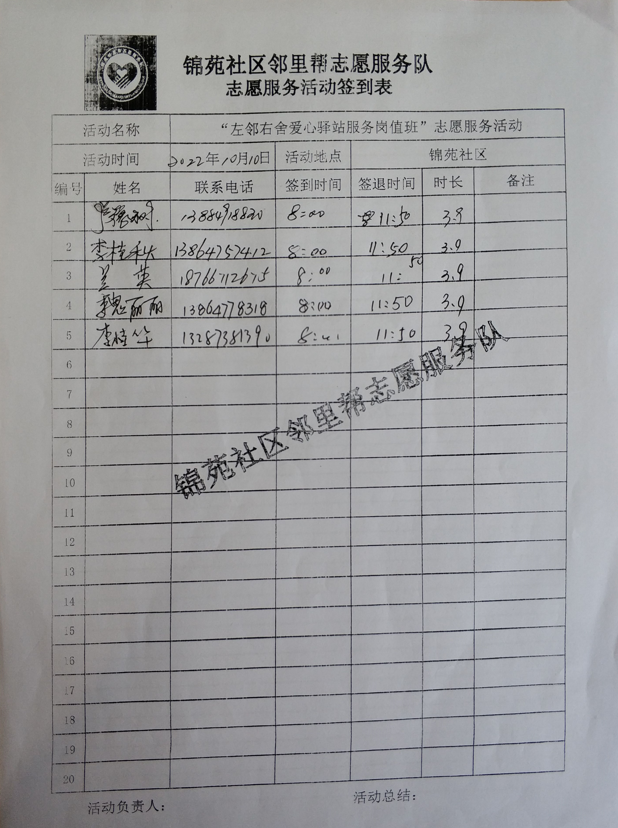 锦苑社区邻里帮志愿服务队
志愿服务活动签到表
活动名称 “左邻右舍爱心驿站服务岗值班”志愿服务活动
活动时间 2022年10月10日 活动地点 锦苑社区
编号 姓名 联系电话 签到时间 签退时间 时长 备注
1 13884918830 8:00 11:50 3.9
2 李桂秋 13864757412 8:00 11:50 3.9
3 兰英 18766712675 8:00 11:50 3.9
4 魏丽丽 13864778318 8:00 11:50 3.9
5 李桂华 13287381390 8:01 11:50 3.9
锦苑社区邻里帮志愿服务队
6
7
8
9
10
11
12
13
14
15
16
17
18
19
20
活动负责人： 活动总结：